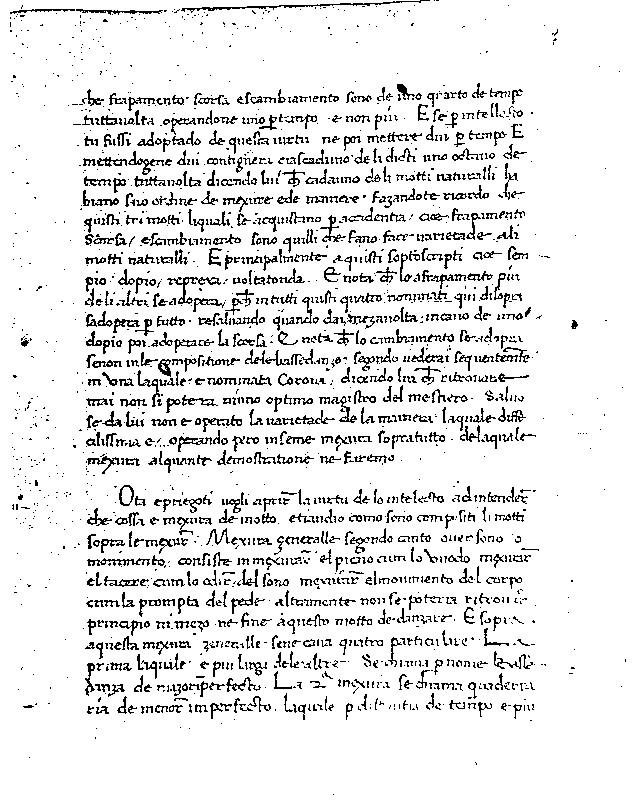 che frapamento scorsa escambiamento sono de uno quarto de tempo
tuttavolta operandone uno ꝑ tempo e non piu. E se ꝑ intellecto
tu fussi adoptado de questa virtu ne poi mettere dui ꝑ tempo E
mettendogene dui contignera ciascaduno de li dicti uno octavo de
tempo tuttavolta dicendo lui cħ cadauno de li motti naturalli ha
biano suo ordine de mexure ede manere. fazandote ricordo che
quisti tri motti liquali se acquistano ꝑ accidentia, cioe frapamento
Scorsa, escambiamento sono quilli che fano fare varietade ali
motti naturalli. E principalmente aquisti soptoscripti cioe sem
pio, dopio, represa, voltatonda. E nota cħ lo afrapamento piu
de li altri se adopera, ꝑcħ in tutti quisti quatro nominati qui disopra
sadopera ꝑ tutto. resalvando quando dai mezavolta, in cavo de uno
dopio poi adoperare la scorsa. E nota cħ lo cambiamento se adopra
senon in le compositione dele bassedanze. segondo vederai sequentemēte
in una laquale e nominata Corona, dicendo lui cħ ritrovare
mai non si potera niuno optimo magistro del mestiero. Salvo
se da lui non e operato la varietade de la maniera laquale diffi
cilissima e, operando pero inseme mexura sopratutto. de laquale
mexura alquante demostratione ne faremo.
Ora epriegoti vogli aprir̄ la virtu de lo intelecto ad intender̄
che cossa e mexura de motto, etiandio como sono compositi li motti
sopra le mexur̄. Mexura generalle segondo canto over sono o
movimento, consiste in mexurar̄ el pieno cum lo vuodo mexurar̄
el tacere cum lo odir̄ del sono mexurar̄ el movimento del corpo
cum la prompta del pede altramente non se poteria ritrovar̄
principio ni mezo ne fine a questo motto de danzare. E sopra
a questa mexura generalle se ne cava quatro particulare. La
prima laquale e piu larga dele altre. Se chiama ꝑ nome bassa
danza de mazor̄ imperfecto. La 2ᵃ mexura se chiama quaderna
ria de menor̄ imperfecto. laquale ꝑ distantia de tempo e piu